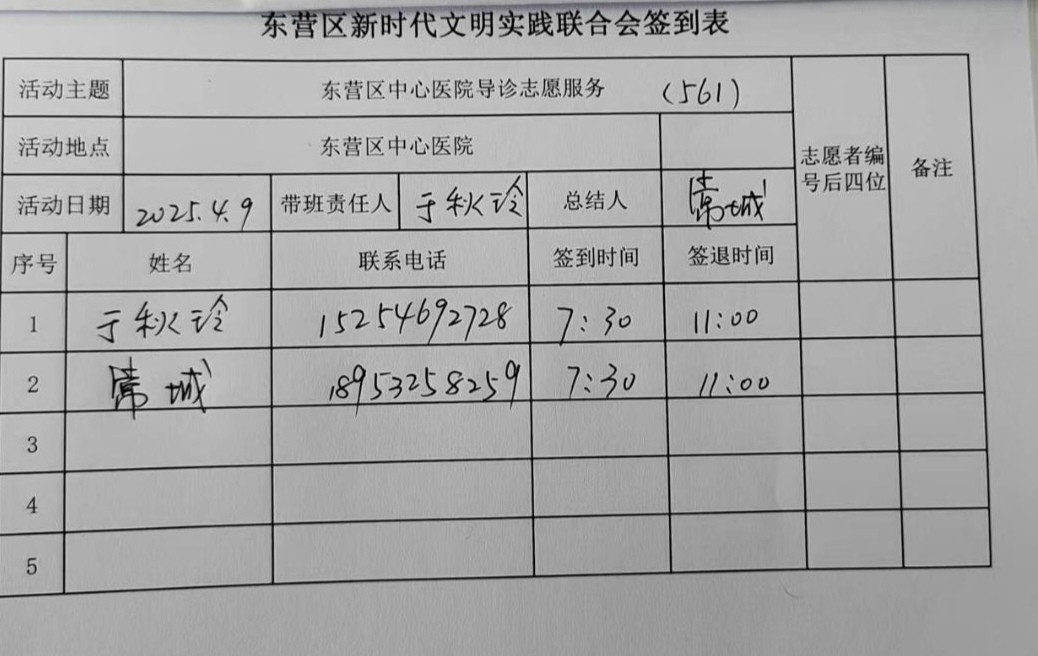 东营区新时代文明实践联合会签到表
活动主题 东营区中心医院导诊志愿服务 (561) 志愿者编号后四位 备注
活动地点 东营区中心医院
活动日期 2025.4.9 带班责任人 于秋玲 总结人 常城
序号 姓名 联系电话 签到时间 签退时间
1 于秋玲 15254692728 7:30 11:00
2 常城 18953258259 7:30 11:00
3
4
5